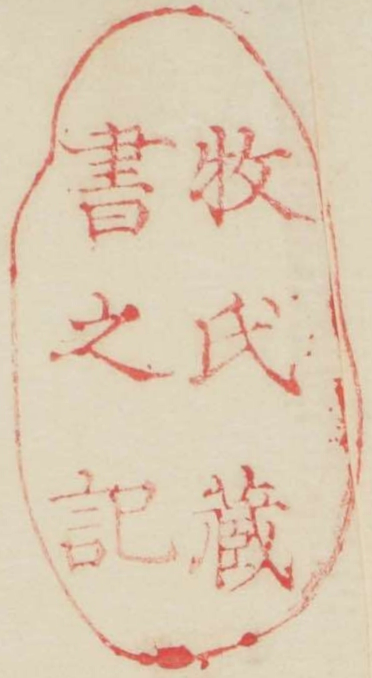 牧氏蔵
書之記